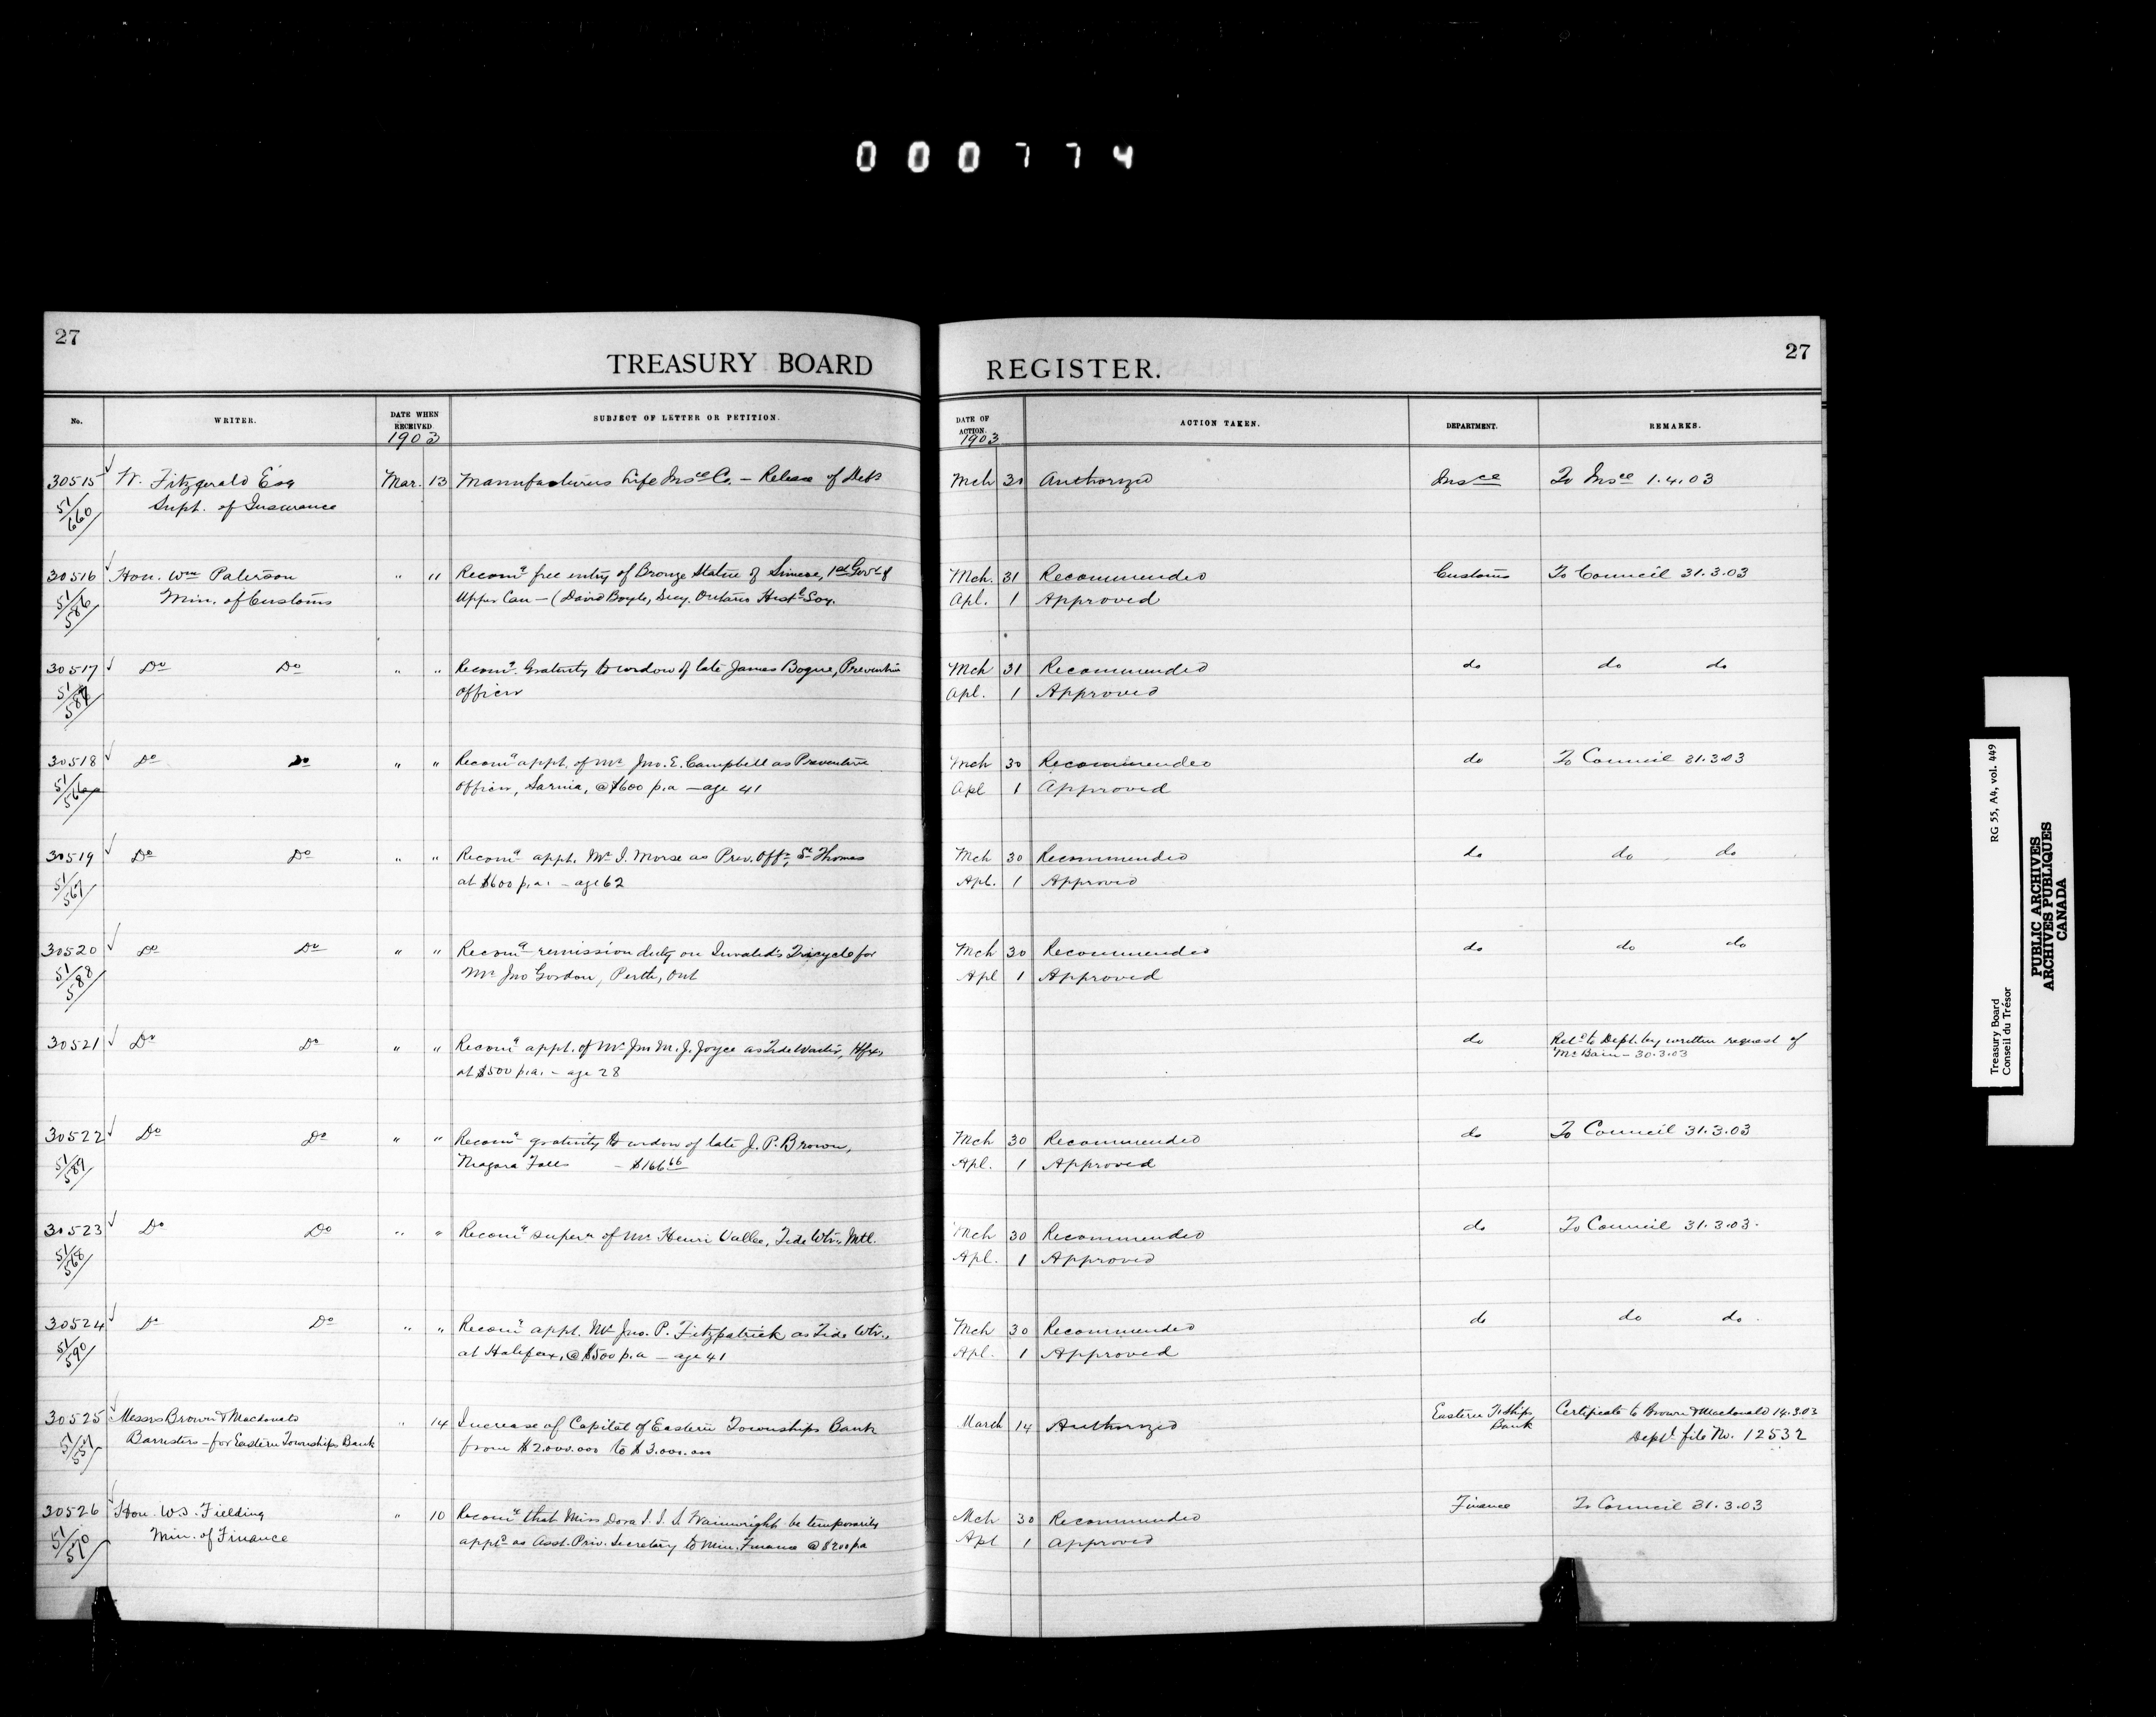 000774
27
TREASURY BOARD
REGISTER.
27
No.
WRITER.
DATE WHEN RECEIVED
1903
SUBJECT OF LETTER OR PETITION.
DATE OF ACTION.
1903
ACTION TAKEN.
DEPARTMENT.
REMARKS.
30515 W. Fitzgerald Esq Mar. 13 Manufacturers Life Insce Co. – Release of Debs Mch 31 Authorized Insce To Insce 1.4.03
51/660 Supt. of Insurance
30516 Hon. Wm Paterson " 11 Recomg free entry of Bronze Statue of Simcoe, 1st Govr of Mch. 31 Recommended Customs To Council 31.3.03
51/586 Min. of Customs Upper Can – (David Boyle, Secy. Ontario Histl Socy. Apl. 1 Approved
30517 Do Do " " Recomg Gratuity to widow of late James Bogue, Preventive Mch 31 Recommended do do do
51/587 Officer Apl. 1 Approved
30518 Do Do " " Recomg appt. of Mr Jno. E. Campbell as Preventive Mch 30 Recommended do To Council 31.3.03
51/566 Officer, Sarnia, @ $600 p.a – age 41 Apl 1 Approved
30519 Do Do " " Recomg appt. Mr I. Morse as Prev. Offr, St Thomas Mch 30 Recommended do do do
51/567 at $600 p.a. – age 62 Apl. 1 Approved
30520 Do Do " " Recomg remission duty on Invalid's Tricycle for Mch 30 Recommended do do do
51/588 Mr Jno Gordon, Perth, Ont Apl 1 Approved
30521 Do Do " " Recomg appt. of Mr Jno M. J. Joyce as Tide Waiter, Hfx do Retd to Dept. by written request of
at $500 p.a. – age 28 Mr Bain – 30.3.03
30522 Do Do " " Recomg gratuity to widow of late J. P. Brown, Mch 30 Recommended do To Council 31.3.03
51/589 Niagara Falls – $166 66 Apl. 1 Approved
30523 Do Do " " Recomg supern of Mr Henri Vallee, Tide Wtr., Mtl. Mch 30 Recommended do To Council 31.3.03.
51/568 Apl. 1 Approved
30524 Do Do " " Recomg appt. Mr Jno. P. Fitzpatrick as Tide Wtr., Mch 30 Recommended do do do.
51/590 at Halifax, @ $500 p.a – age 41 Apl. 1 Approved
30525 Messrs Brown & Macdonald " 14 Increase of Capital of Eastern Townships Bank March 14 Authorized Eastern T. Ships Certificate to Brown & Macdonald 14.3.03
51/557 Barristers – for Eastern Townships Bank from $2.000.000 to $3.000.000 Bank Deptl file No. 12532
30526 Hon. W.S. Fielding " 10 Recomg that Miss Dora Wainwright be temporarily Mch 30 Recommended Finance To Council 31.3.03
51/570 Min. of Finance apptd as Asst. Priv. Secretary to Min. Finance @ p.a Apl 1 approved
Treasury Board RG 55, A4, vol. 449
Conseil du Trésor
PUBLIC ARCHIVES
ARCHIVES PUBLIQUES
CANADA